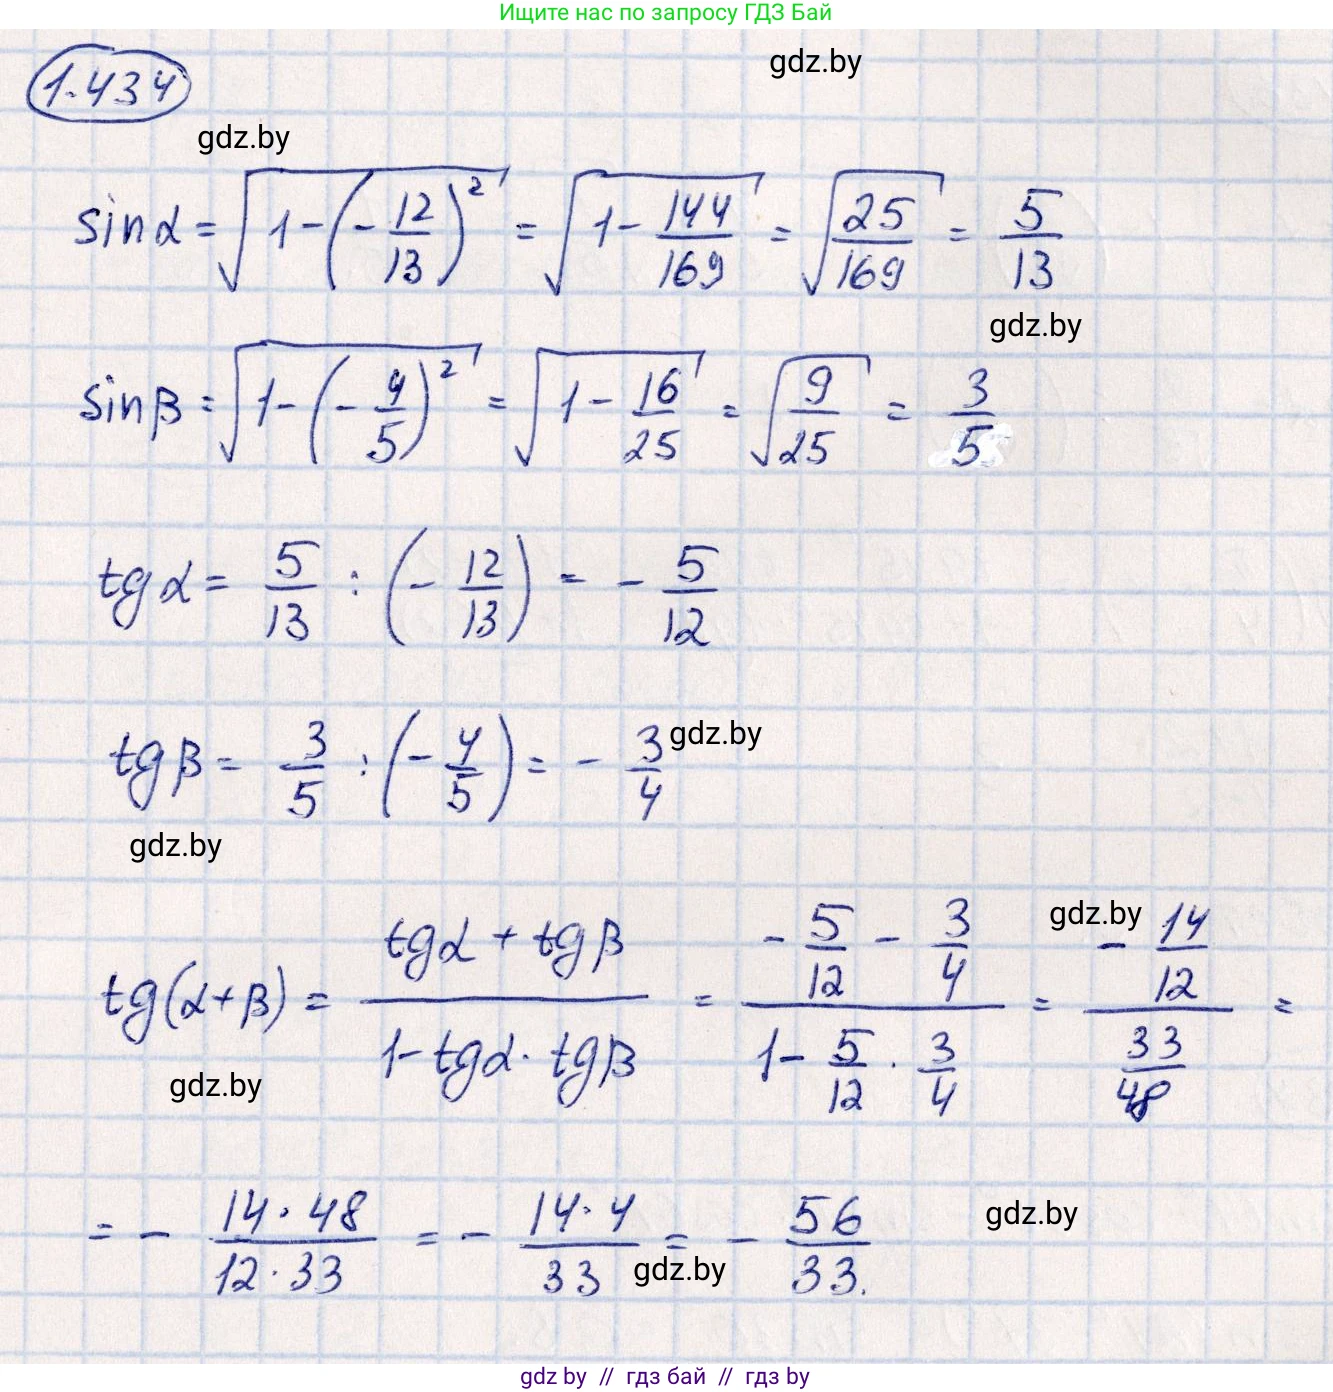 Ищите нас по запросу ГДЗ Бай
gdz.by
1.434
gdz.by
sinα = √(1-(-12/13)²) = √(1-144/169) = √(25/169) = 5/13
gdz.by
sinβ = √(1-(-4/5)²) = √(1-16/25) = √(9/25) = 3/5
tgα = 5/13 : (-12/13) = -5/12
tgβ = 3/5 : (-4/5) = -3/4
gdz.by
gdz.by
gdz.by
tg(α+β) = (tgα + tgβ)/(1-tgα·tgβ) = (-5/12 - 3/4)/(1-5/12·3/4) = (-14/12)/(33/48) =
gdz.by
= - (14·48)/(12·33) = - (14·4)/33 = - 56/33.
gdz.by
gdz.by
gdz by // гдз бай // гдз by